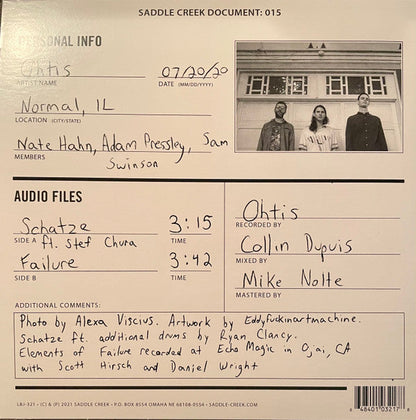 SADDLE CREEK DOCUMENT: 015
PERSONAL INFO
Ohtis
07/20/20
ARTIST NAME
DATE (MM/DD/YYYY)
Normal, IL
LOCATION (CITY/STATE)
Nate Hahn, Adam Pressley, Sam
MEMBERS
Swinson
AUDIO FILES
Schatze
3:15
SIDE A
ft. Stef Chura
TIME
Failure
3:42
SIDE B
TIME
Ohtis
RECORDED BY
Collin Dupuis
MIXED BY
Mike Nolte
MASTERED BY
ADDITIONAL COMMENTS:
Photo by Alexa Viscius. Artwork by Eddyfuckinartmachine.
Schatze ft. additional drums by Ryan Clancy.
Elements of Failure recorded at Echo Magic in Ojai, CA
with Scott Hirsch and Daniel Wright
LBJ-321 • (C) & (P) 2021 SADDLE CREEK • P.O. BOX 8554 OMAHA NE 68108-0554 • SADDLE-CREEK.COM